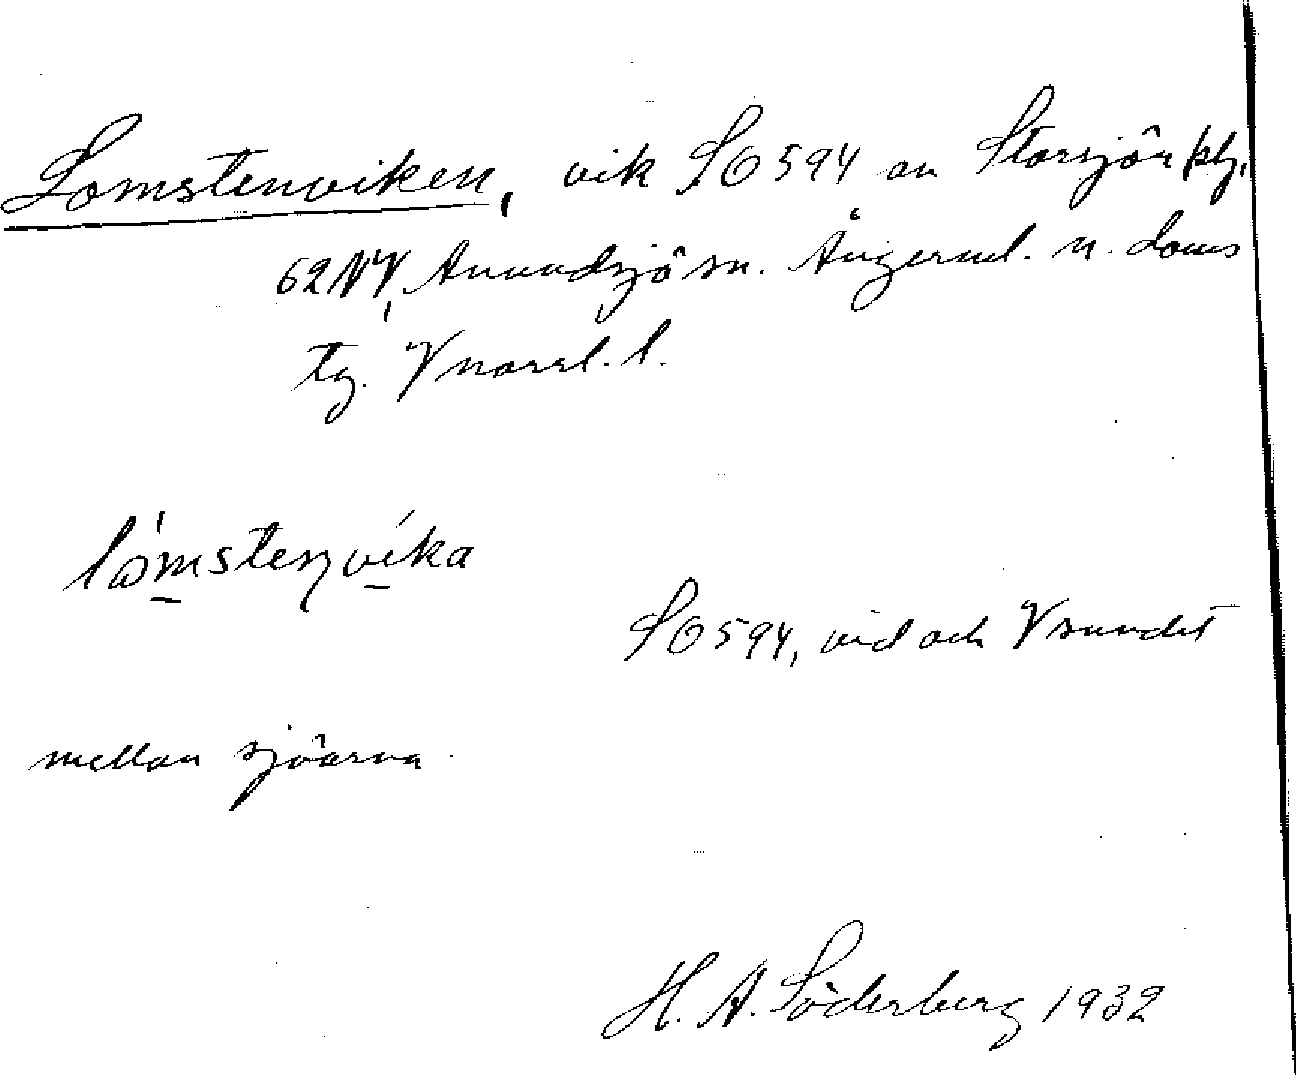 Lomstenviken, vik SO 594 an Storsjön kbl.
62 NV, Anundsjö sn. Ångerml. n. doms
tg. Vnorrl. l.
lómstenvíka
SO 594, vid och V sundet
mellan sjöarna.
H. A. Söderberg 1932